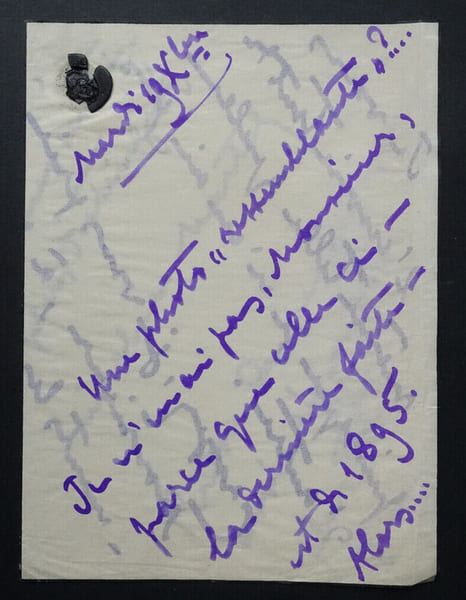 Mardi 19 Xbre
Une photo "ressemblante"?....
Je n'en ai pas, Monsieur,
parce que celle ci -
la dernière faite -
est de 1895.
Alors....